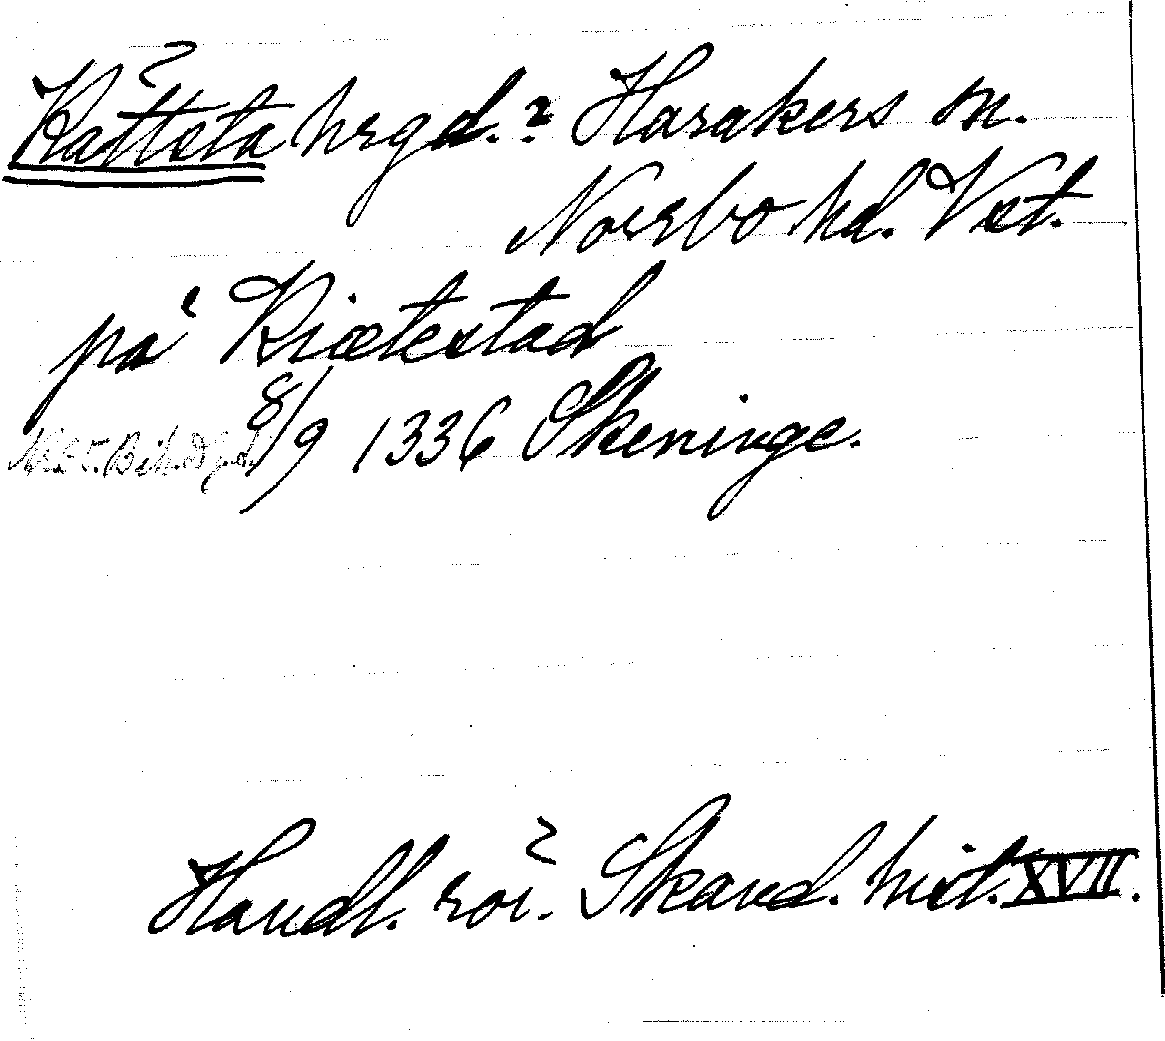 Kättsta hrgd.? Harakers sn.
Norrbo hd. Vst.
på Kiætestad
8/9 1336 Skeninge.
Handl. rör. Skand. hist. XVII.